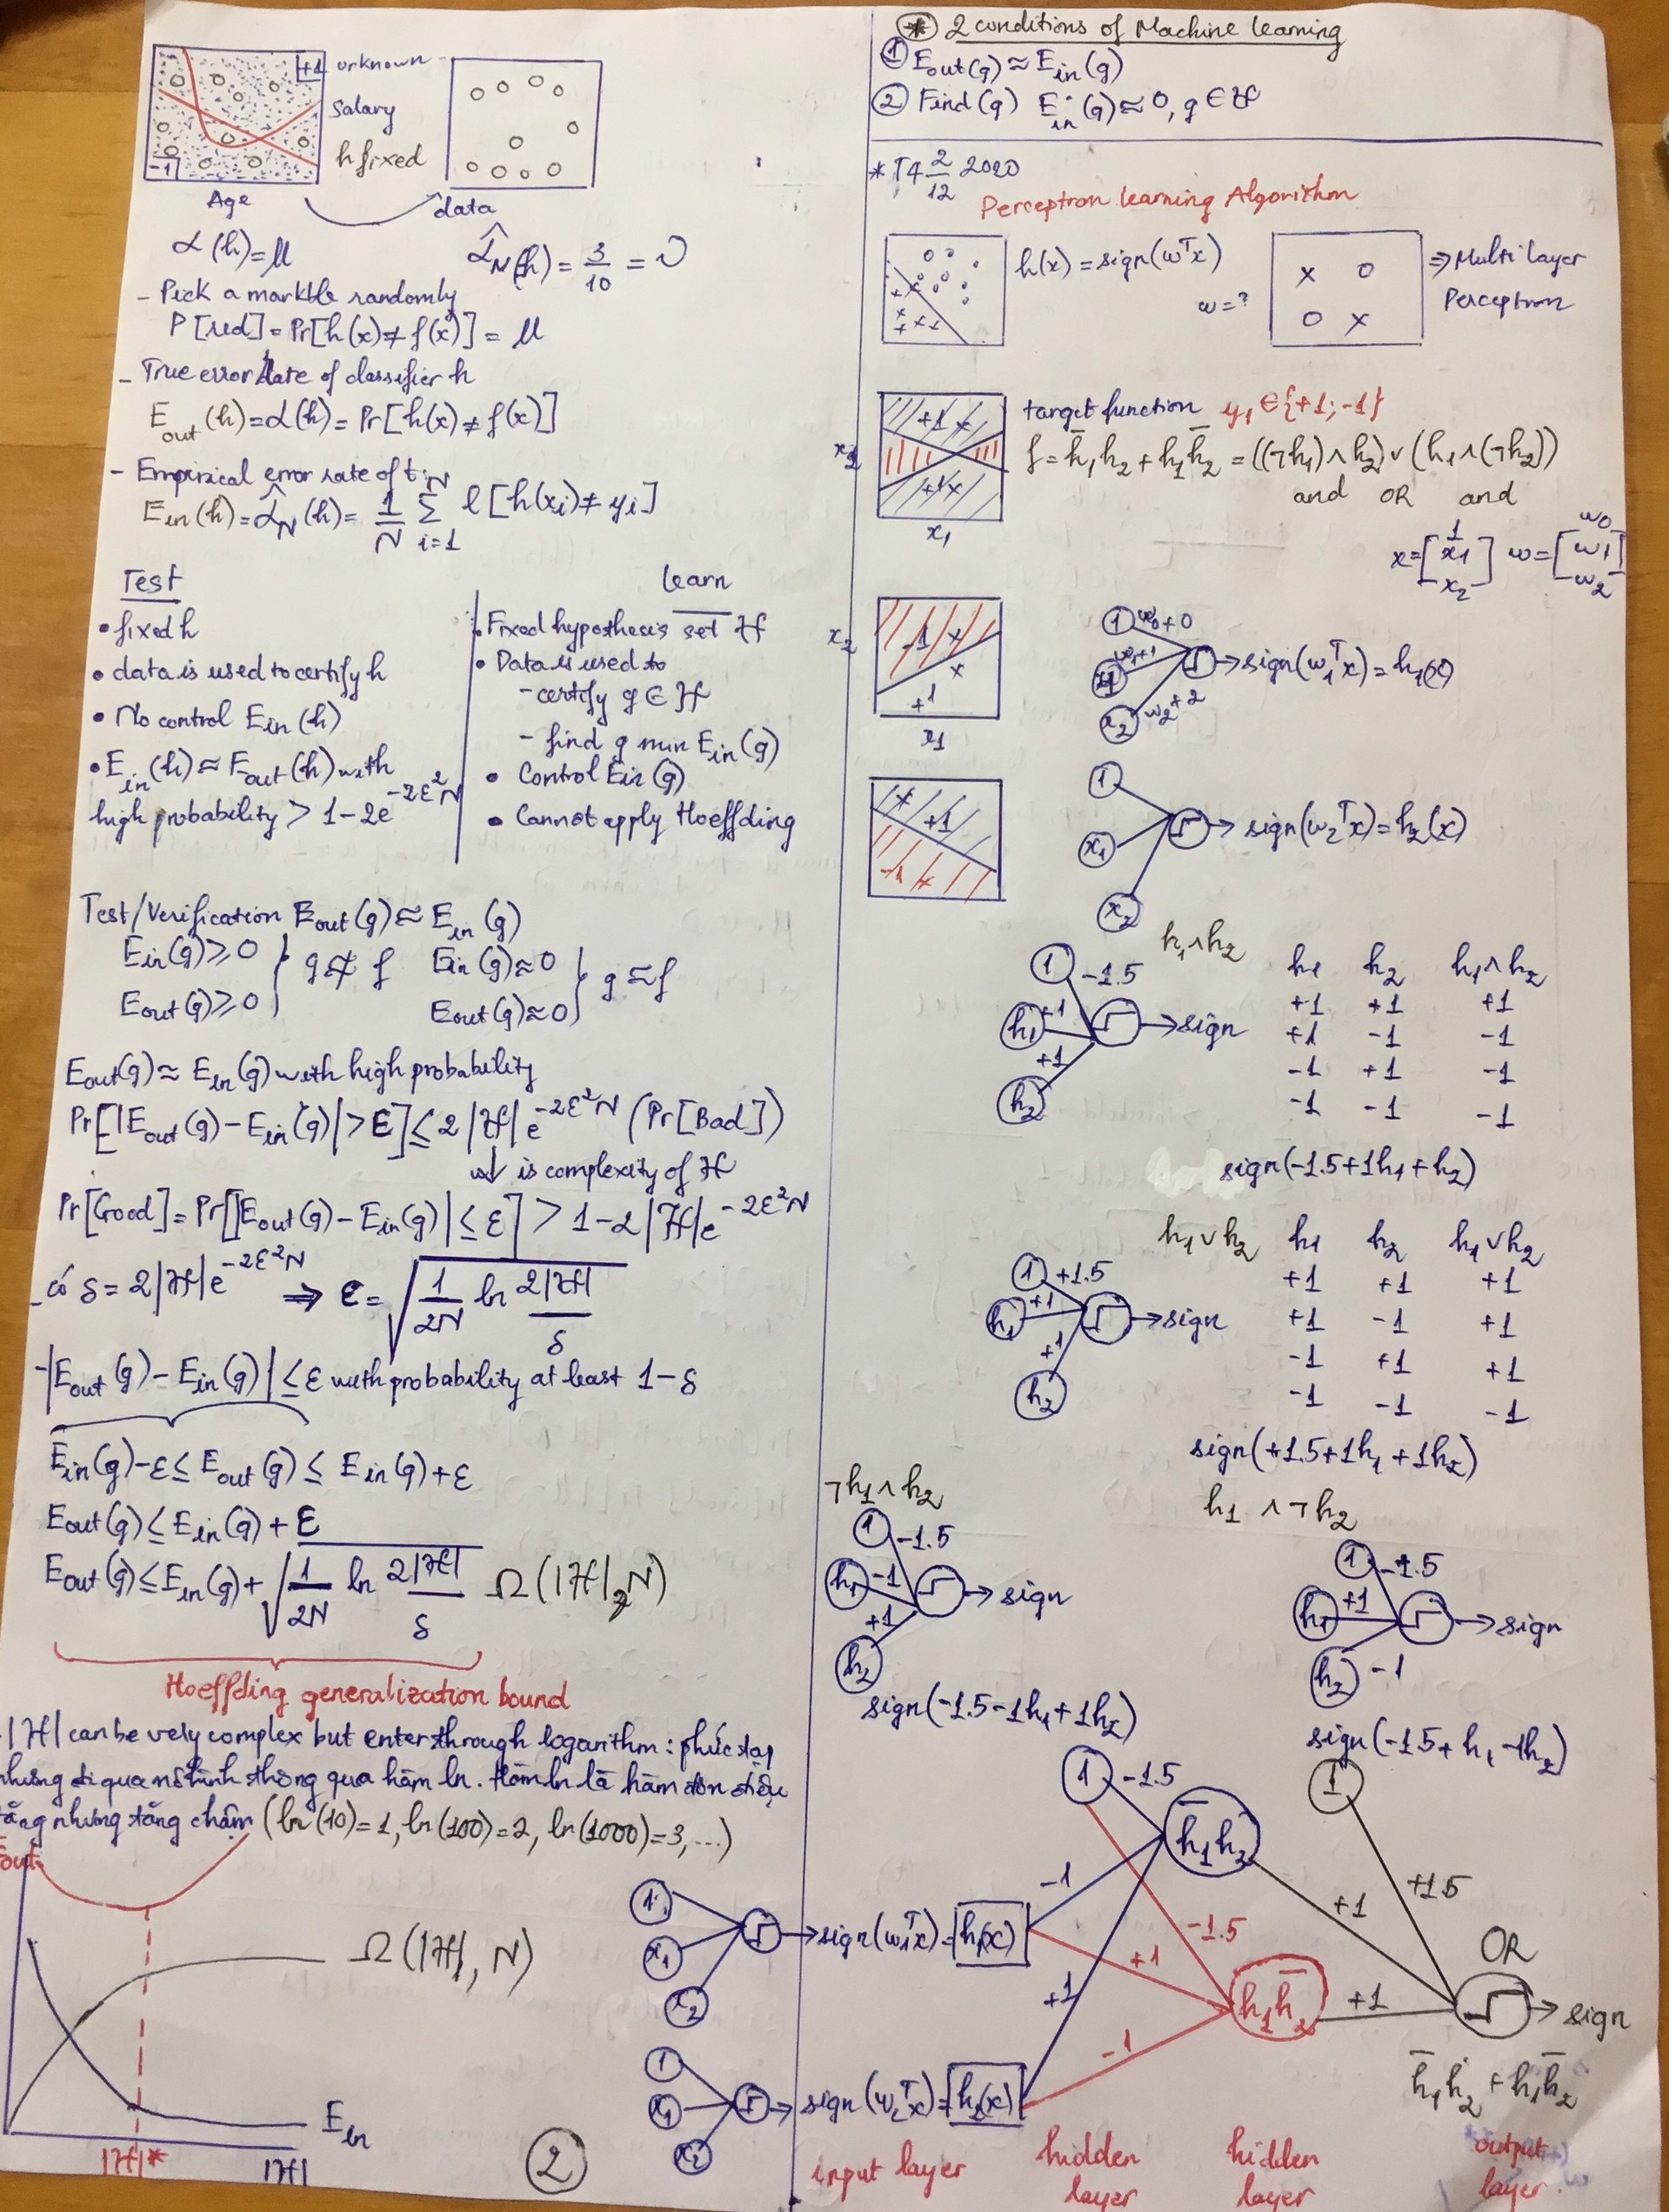 +1 unknown
Salary
h fixed
-1
Age
data
α(h)=μ
α̂_N(h) = 3/10 = ν
- Pick a markble randomly
P[red] = Pr[h(x)≠f(x)] = μ
- True error rate of classifier h
E_out(h)=α(h)= Pr[h(x)≠f(x)]
- Empirical error rate of t:
E_in(h)=α̂_N(h)= 1/N Σ_{i=1}^{N} ℓ[h(xi)≠yi]
Test
• fixed h
• data is used to certify h
• No control Ein(h)
• E_in(h) ≈ Eout(h) with
high probability > 1-2e^{-2ε²N}
Learn
• Fixed hypothesis set H
• Data is used to
- certify g ∈ H
- find g min Ein(g)
• Control Ein(g)
• Cannot apply Hoeffding
Test/Verification Eout(g) ≈ Ein(g)
Ein(g)≫0 } g≉f Ein(g)≈0 } g≈f
Eout(g)≫0 Eout(g)≈0
Eout(g)≈ Ein(g) with high probability
Pr[|Eout(g)-Ein(g)|>ε]≤2|H|e^{-2ε²N} (Pr[Bad])
is complexity of H
Pr[Good]=Pr[|Eout(g)-Ein(g)|≤ε] > 1-2|H|e^{-2ε²N}
- có δ=2|H|e^{-2ε²N} ⇒ ε=√(1/2N ln 2|H|/δ)
-|Eout(g)-Ein(g)|≤ε with probability at least 1-δ
Ein(g)-ε≤Eout(g)≤ Ein(g)+ε
Eout(g)≤Ein(g)+ε
Eout(g)≤Ein(g)+√(1/2N ln 2|H|/δ) Ω(|H|,N)
Hoeffding generalization bound
- |H| can be very complex but enter through logarithm: phức tạp
nhưng đi qua mô hình thông qua hàm ln. Hàm ln là hàm đơn điệu
tăng nhưng tăng chậm (ln(10)=1, ln(100)=2, ln(1000)=3,...)
Eout
Ω(|H|, N)
Ein
|H|* |H|
2
* 2 conditions of Machine learning
1 Eout(g)≈Ein(g)
2 Find(g) Ein(g)≈0, g∈H
* T4 2/12 2020
Perceptron learning Algorithm
h(x)=sign(wᵀx)
w=?
x o
o x
⇒ Multi layer
Perceptron
+1 x
+1 x
x2
x1
target function y1∈{+1;-1}
f=h̄1h2+h1h̄2=((¬h1)∧h2)∨(h1∧(¬h2))
and OR and
x=[1 x1 x2] w=[w0 w1 w2]
x2
-1 x
x
+1
x1
1 w0+0
x1 w1+1
x2 w2+2
sign(w1ᵀx)=h1(x)
x +1
-1 x
1
x1
x2
sign(w2ᵀx)=h2(x)
h1∧h2
1 -1.5
h1 +1
+1
h2
sign
h1 h2 h1∧h2
+1 +1 +1
+1 -1 -1
-1 +1 -1
-1 -1 -1
sign(-1.5+1h1+h2)
h1∨h2
1 +1.5
h1 +1
+1
h2
sign
h1 h2 h1∨h2
+1 +1 +1
+1 -1 +1
-1 +1 +1
-1 -1 -1
sign(+1.5+1h1+1h2)
¬h1∧h2
1 -1.5
h1 -1
+1
h2
sign
sign(-1.5-1h1+1h2)
h1∧¬h2
1 -1.5
h1 +1
h2 -1
sign
sign(-1.5+h1-1h2)
1 -1.5
h̄1h2
1
+1.5
-1
+1
1
x1
x2
sign(w1ᵀx)=h1(x)
-1.5
+1
+1
h1h̄2
+1
OR
sign
-1
1
x1
x2
sign(w2ᵀx)=h2(x)
h̄1h2+h1h̄2
input layer
hidden layer
hidden layer
output layer